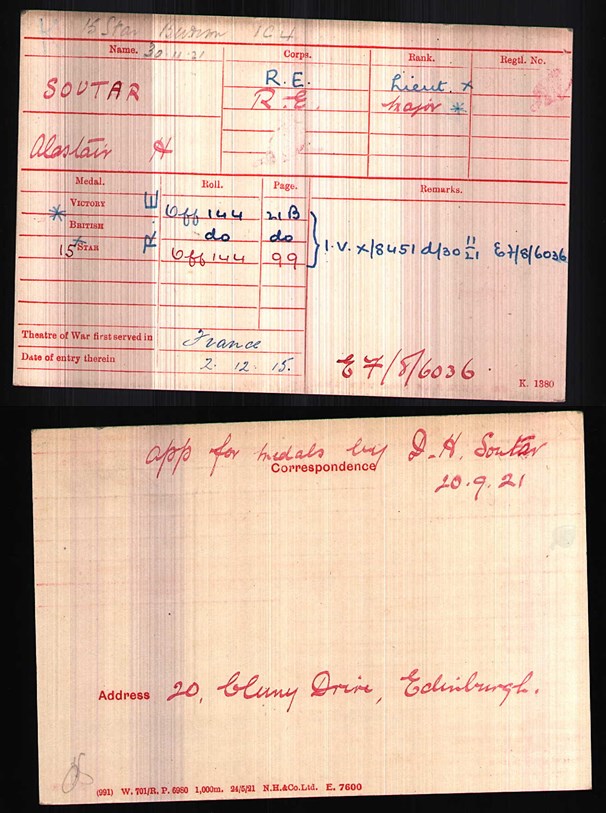 15 Star
Name. 30.11.21 Corps. Rank. Regtl. No.
SOUTAR R.E. Lieut. x
R.E. Major *
Alastair H
Medal. Roll. Page. Remarks.
* VICTORY R.E Off 144 21B
BRITISH do do I.V. x/8451 d/30 11/21 E7/8/6036
15 x STAR Off 144 99
Theatre of War first served in France
Date of entry therein 2.12.15.
E7/8/6036
K. 1380
app for medals by D.H. Soutar
Correspondence
20.9.21
Address 20, Cluny Drive, Edinburgh.
(991) W. 701/R. P. 6980 1,000m. 24/5/21 N.H.&Co.Ltd. E. 7600